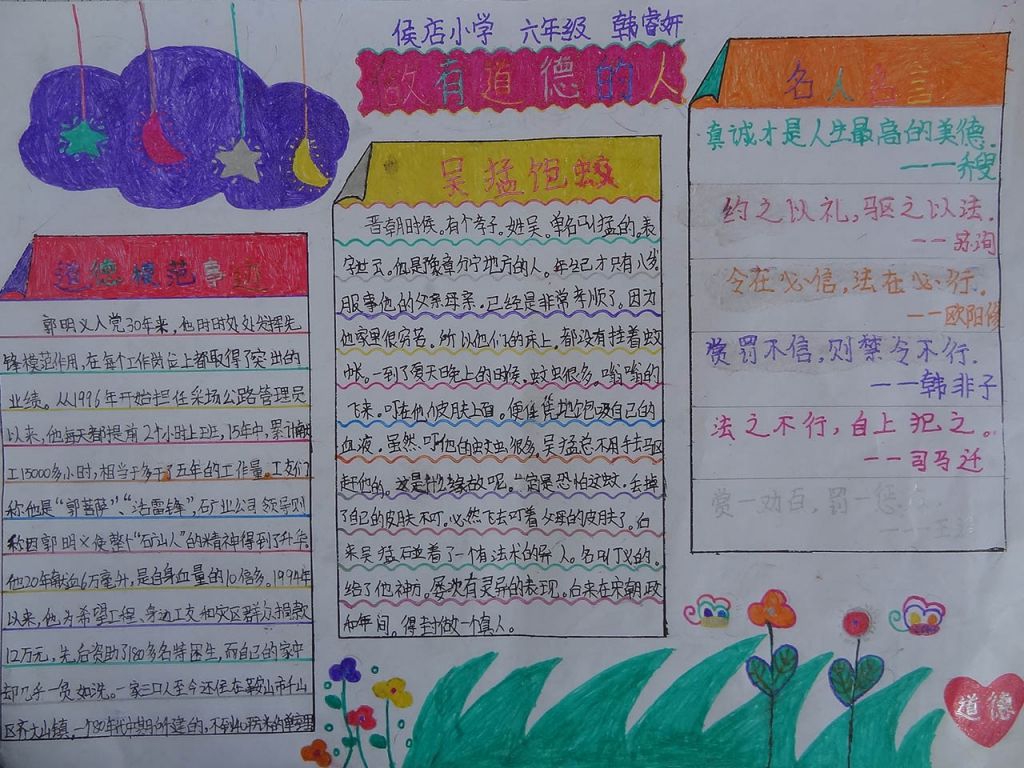 侯店小学 六年级 韩睿妍
做有道德的人
道德模范事迹
郭明义入党30年来,他时时处处发挥先
锋模范作用,在每个工作岗位上都取得了突出的
业绩。从1996年开始担任采场公路管理员
以来,他每天都提前2个小时上班,15年中,累计献
工15000多小时,相当于多干了五年的工作量。工友们
称他是“郭菩萨”、“活雷锋”,矿业公司领导则
称因郭明义使整个“矿山人”的精神得到了升华
他20年献血6万毫升,是自身血量的10倍多。1994年
以来,他为希望工程、身边工友和灾区群众捐款
12万元,先后资助了180多名特困生,而自己的家中
却几乎一贫如洗。一家三口人至今还住在鞍山市千山
区齐大山镇,一个80年代中期所建的,不到40平米的单室里
吴猛饱蚊
晋朝时候。有个孝子。姓吴。单名叫猛的。表
字世云。他是豫章分宁地方的人。年纪才只有八岁
服事他的父亲母亲。已经是非常孝顺了。因为
他家里很穷苦。所以他们的床上。都没有挂着蚊
帐。一到了夏天晚上的时候。蚊虫很多。嗡嗡的
飞来。叮在他们皮肤上面。便恁凭地饱吸自己的
血液。虽然叮他的蚊虫很多。吴猛总不用手去驱
赶他们的。这是什么缘故呢。定是恐怕这蚊。去掉
了自己的皮肤不叮。必然飞去叮着父母的皮肤了。后
来吴猛碰着了一个有法术的异人。名叫丁义的。
给了他神方。屡次有灵异的表现。后来在宋朝政
和年间。得封做一个真人。
名人名言
真诚才是人生最高的美德.
——乔叟
约之以礼,驱之以法.
——苏洵
令在必信,法在必行.
——欧阳修
赏罚不信,则禁令不行.
——韩非子
法之不行,自上犯之。
——司马迁
赏一劝百,罚一惩
道德